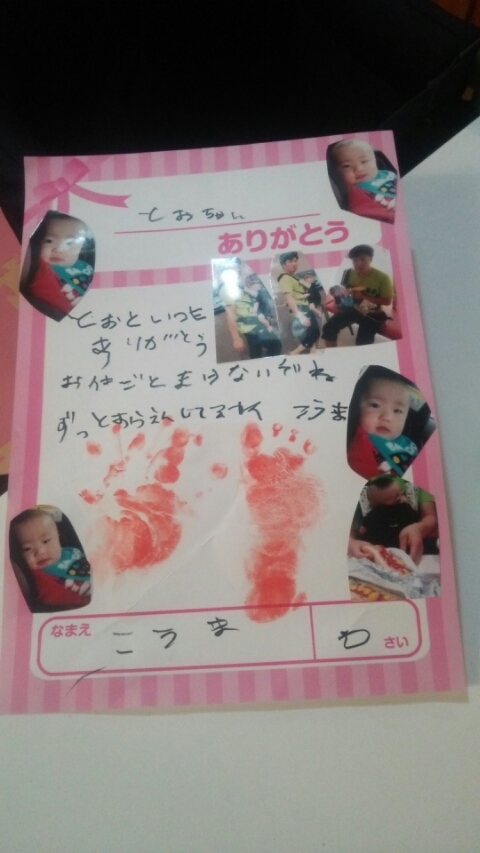 とおちゃん
ありがとう
とおといつも
ありがとう
お仕ごとまけないぞね
ずっとおうえんしてるすく こうま
なまえ こうま
さい